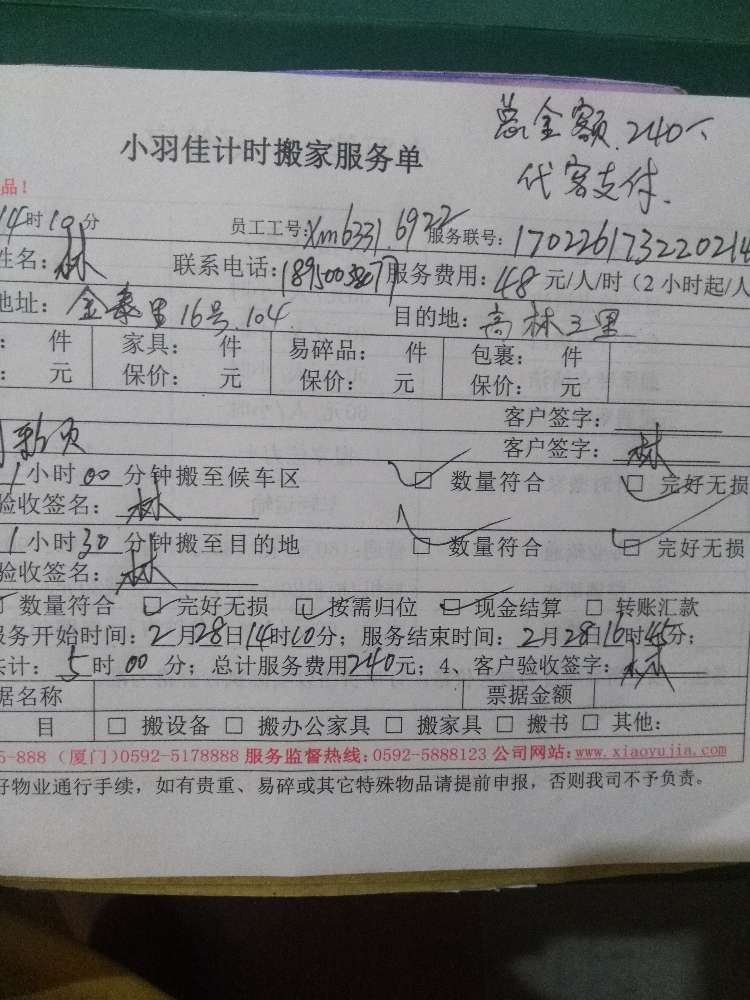 总金额.240个
代客支付.
小羽佳计时搬家服务单
品！
14时10分 员工工号:xm6331.6922 服务联号:170226173220214
姓名: 林 联系电话: 服务费用: 48 元/人/时（2小时起/人
地址: 金泰里16号.104. 目的地: 高林三里
: 件 家具: 件 易碎品: 件 包裹: 件
: 元 保价: 元 保价: 元 保价: 元
客户签字:
客户签字: 林
1小时00分钟搬至候车区 ☑ 数量符合 ☑ 完好无损
验收签名: 林
1小时30分钟搬至目的地 ☑ 数量符合 ☑ 完好无损
验收签名: 林
☑ 数量符合 ☑ 完好无损 ☑ 按需归位 ☑ 现金结算 □ 转账汇款
服务开始时间: 2月28日14时10分; 服务结束时间: 2月28日16时45分;
共计: 5时00分; 总计服务费用240元; 4、客户验收签字: 林
据名称 票据金额
目 □ 搬设备 □ 搬办公家具 □ 搬家具 □ 搬书 □ 其他:
5-888（厦门)0592-5178888 服务监督热线:0592-5888123 公司网站:www.xiaoyujia.com
好物业通行手续，如有贵重、易碎或其它特殊物品请提前申报，否则我司不予负责。